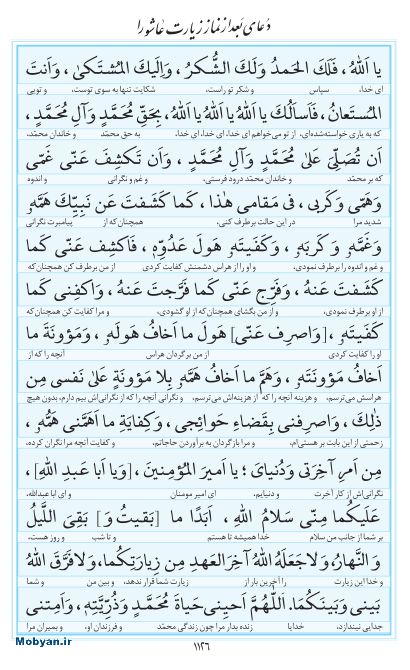 دعای بعد از نماز زیارت عاشورا
یا اَللهُ ، فَلَكَ الحَمدُ وَلَكَ الشُّكرُ ، وَاِلَیكَ المُشتَكیٰ ، وَاَنتَ
ای خدا، سپاس و شکر تو راست، شکایت تنها به سوی توست، و تویی
المُستَعانُ ، فَاَساَلُكَ یا اَللهُ یا اَللهُ یا اَللهُ، بِحَقِّ مُحَمَّدٍ وَآلِ مُحَمَّدٍ ،
که به یاری خواسته شده‌ای، از تو می‌خواهم ای خدا، ای خدا، ای خدا، به حق محمّد و خاندان محمّد،
اَن تُصَلِّیَ عَلیٰ مُحَمَّدٍ وَآلِ مُحَمَّدٍ ، وَاَن تَكشِفَ عَنّی غَمّی
که بر محمّد و خاندان محمّد درود فرستی، و غم و نگرانی و اندوه
وَهَمّی وَكَربی ، فی مَقامی هٰذا ، كَما كَشَفتَ عَن نَبِیِّكَ هَمَّهُ
شدید مرا در این حالت برطرف کنی، همچنان که از پیامبرت نگرانی
وَغَمَّهُ وَكَربَهُ ، وَكَفَیتَهُ هَولَ عَدُوِّهِ ، فَاكشِف عَنّی كَما
و غم و اندوه را برطرف نمودی، و او را از هراس دشمنش کفایت کردی از من برطرف کن همچنان‌که
كَشَفتَ عَنهُ ، وَفَرِّج عَنّی كَما فَرَّجتَ عَنهُ ، وَاكفِنی كَما
از او برطرف نمودی، و از من بگشای همچنان که از او گشودی، و مرا کفایت کن همچنان‌که
كَفَیتَهُ ، [وَاصرِف عَنّی] هَولَ ما اَخافُ هَولَهُ ، وَمَؤونَةَ ما
او را کفایت کردی از من برگردان هراس آنچه را که از
اَخافُ مَؤونَتَهُ ، وَهَمَّ ما اَخافُ هَمَّهُ بِلا مَؤونَةٍ عَلیٰ نَفسی مِن
هراسش می‌ترسم، و هزینه آنچه را که از هزینه‌اش می‌ترسم، و نگرانی آنچه را که از نگرانی‌اش بیم دارم، بدون هیچ
ذٰلِكَ ، وَاصرِفنی بِقَضاءِ حَوائِجی ، وَكِفایَةِ ما اَهَمَّنی هَمُّهُ ،
زحمتی از این بابت بر هستی‌ام، و مرا بازگردان به برآوردن حاجاتم، و کفایت آنچه مرا نگران کرده،
مِن اَمرِ آخِرَتی وَدُنیایَ ؛ یا اَمیرَ المُؤمِنینَ ، [وَیا اَبا عَبدِ اللهِ] ،
نگرانی‌اش از کار آخرت و دنیایم، ای امیر مومنان و ای ابا عبدالله،
عَلَیكُما مِنّی سَلامُ اللهِ ، اَبَدًا ما [بَقیتُ وَ] بَقِیَ اللَّیلُ
بر شما از جانب من سلام خدا همیشه تا هستم و تا شب و روز هست،
وَالنَّهارُ، وَلا جَعَلَهُ اللهُ آخِرَ العَهدِ مِن زِیارَتِكُما، وَلا فَرَّقَ اللهُ
و خدا این زیارت را آخرین بار از زیارت شما قرار ندهد، و بین من و شما
بَینی وَبَینَكُما. اَللّٰهُمَّ اَحیِنی حَیاةَ مُحَمَّدٍ وَذُرِّیَّتِهِ، وَاَمِتنی
جدایی نیندازد، خدایا زنده بدار مرا چون زندگی محمّد و فرزندان او، و بمیران مرا
۱۱۲۶
Mobyan.ir